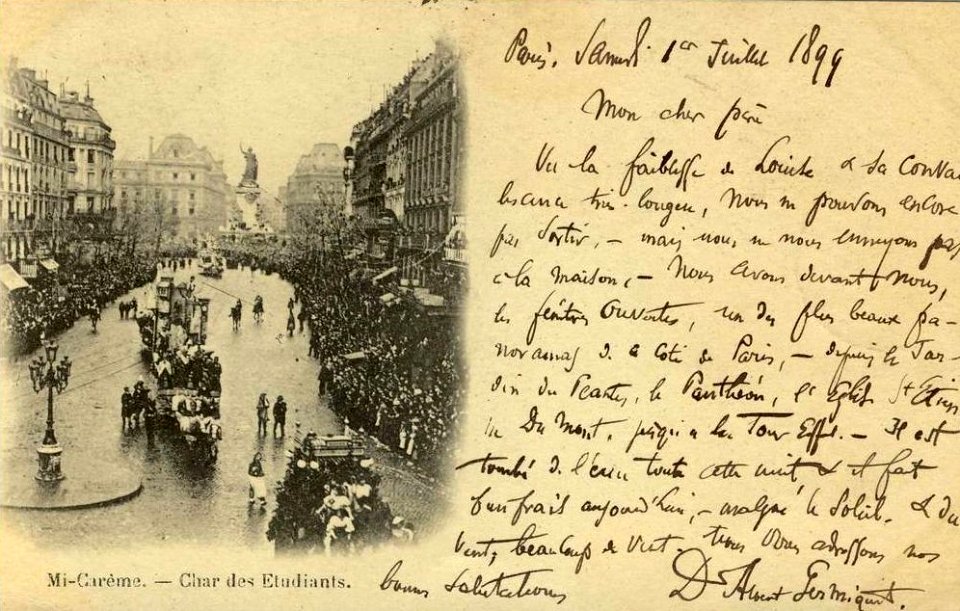 Paris, Samedi 1er Juillet 1899
Mon cher père
Vu la faiblesse de Louise & sa conva
lescence très-longue, nous ne pouvons encore
pas sortir, – mais nous ne nous ennuyons pas
à la maison, – Nous avons devant nous,
les fenêtres ouvertes, un des plus beaux pa-
noramas de ce côté de Paris, – depuis le Jar-
din du Plantes, le Panthéon, l'Eglise St Etien
ne du Mont, jusqu'à la Tour Eiffel. – Il est
tombé de l'eau toute cette nuit, & il fait
bien frais aujourd'hui, – malgré le Soleil. & du
vent, beaucoup de vent. Nous vous adressons nos
bonnes salutations
Dr Albert
Mi-Carême. — Char des Etudiants.